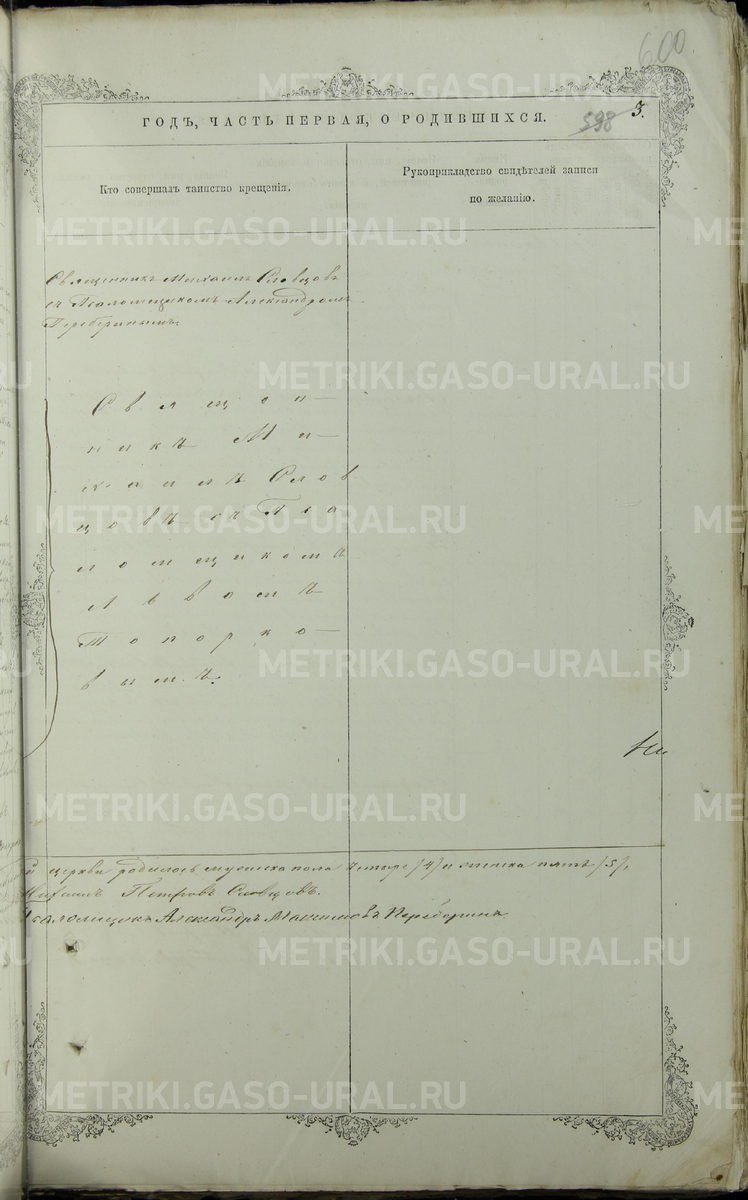 600
ГОДЪ, ЧАСТЬ ПЕРВАЯ, О РОДИВШИХСЯ.
598 3.
Кто совершалъ таинство крещенія.
Рукоприкладство свидѣтелей записи
по желанію.
Священникъ Михаилъ Словцовъ
съ Псаломщикомъ Александромъ
Переберинымъ.
Священ-
никъ Ми-
хаилъ Слов
цовъ съ Пса
ломщикомъ
Львомъ
Топорко-
вымъ.
церкви родилось мужска пола четыре /4/ и женска пять /5/,
Михаилъ Петровъ Словцовъ.
Псаломщикъ Александръ Максимовъ Переберинъ
METRIKI.GASO-URAL.RU